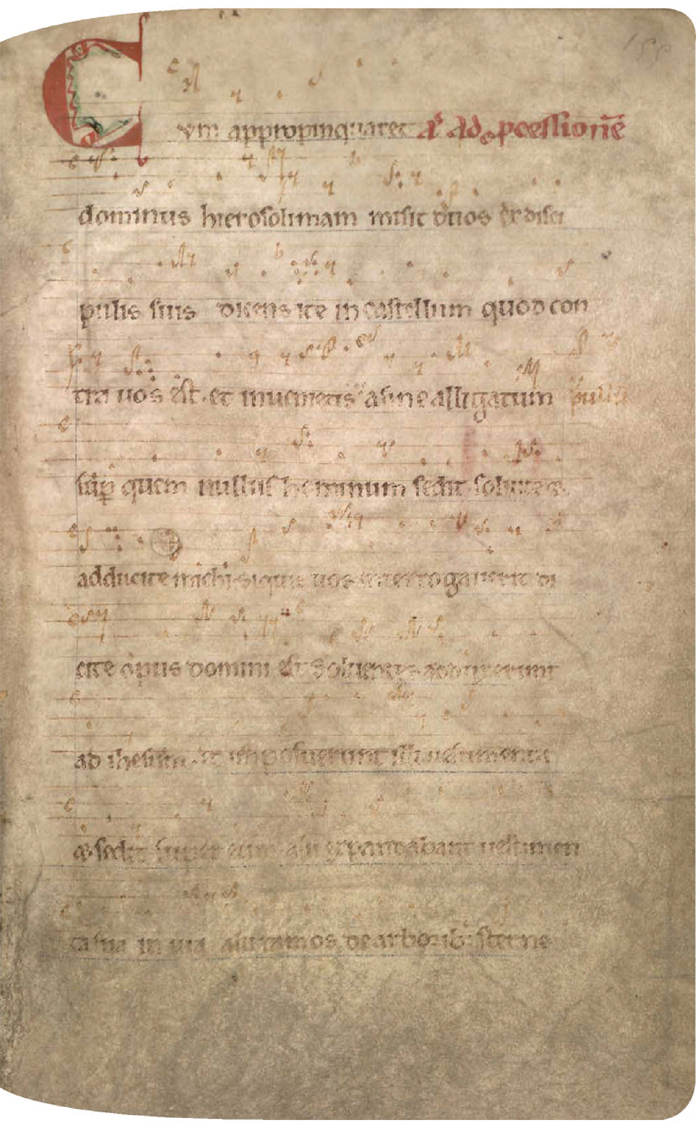 Cum appropinquaret A᷎ Ad p̱cessionē
dominus hierosolimam misit duos ex disci
pulis suis dicens ite in castellum quod con
tra uos est. et inuenietis asine alligatum
sup̱ quem nullus hominum sedit soluite &
adducite michi. siquis uos interrogauerit di
cite opus domini est Soluentes adduxerunt
ad ihesum et imposuerunt illi uestimenta
& sedit super eum alii expandebant uestimen
ta sua in uia alii ramos de arborib; sterne